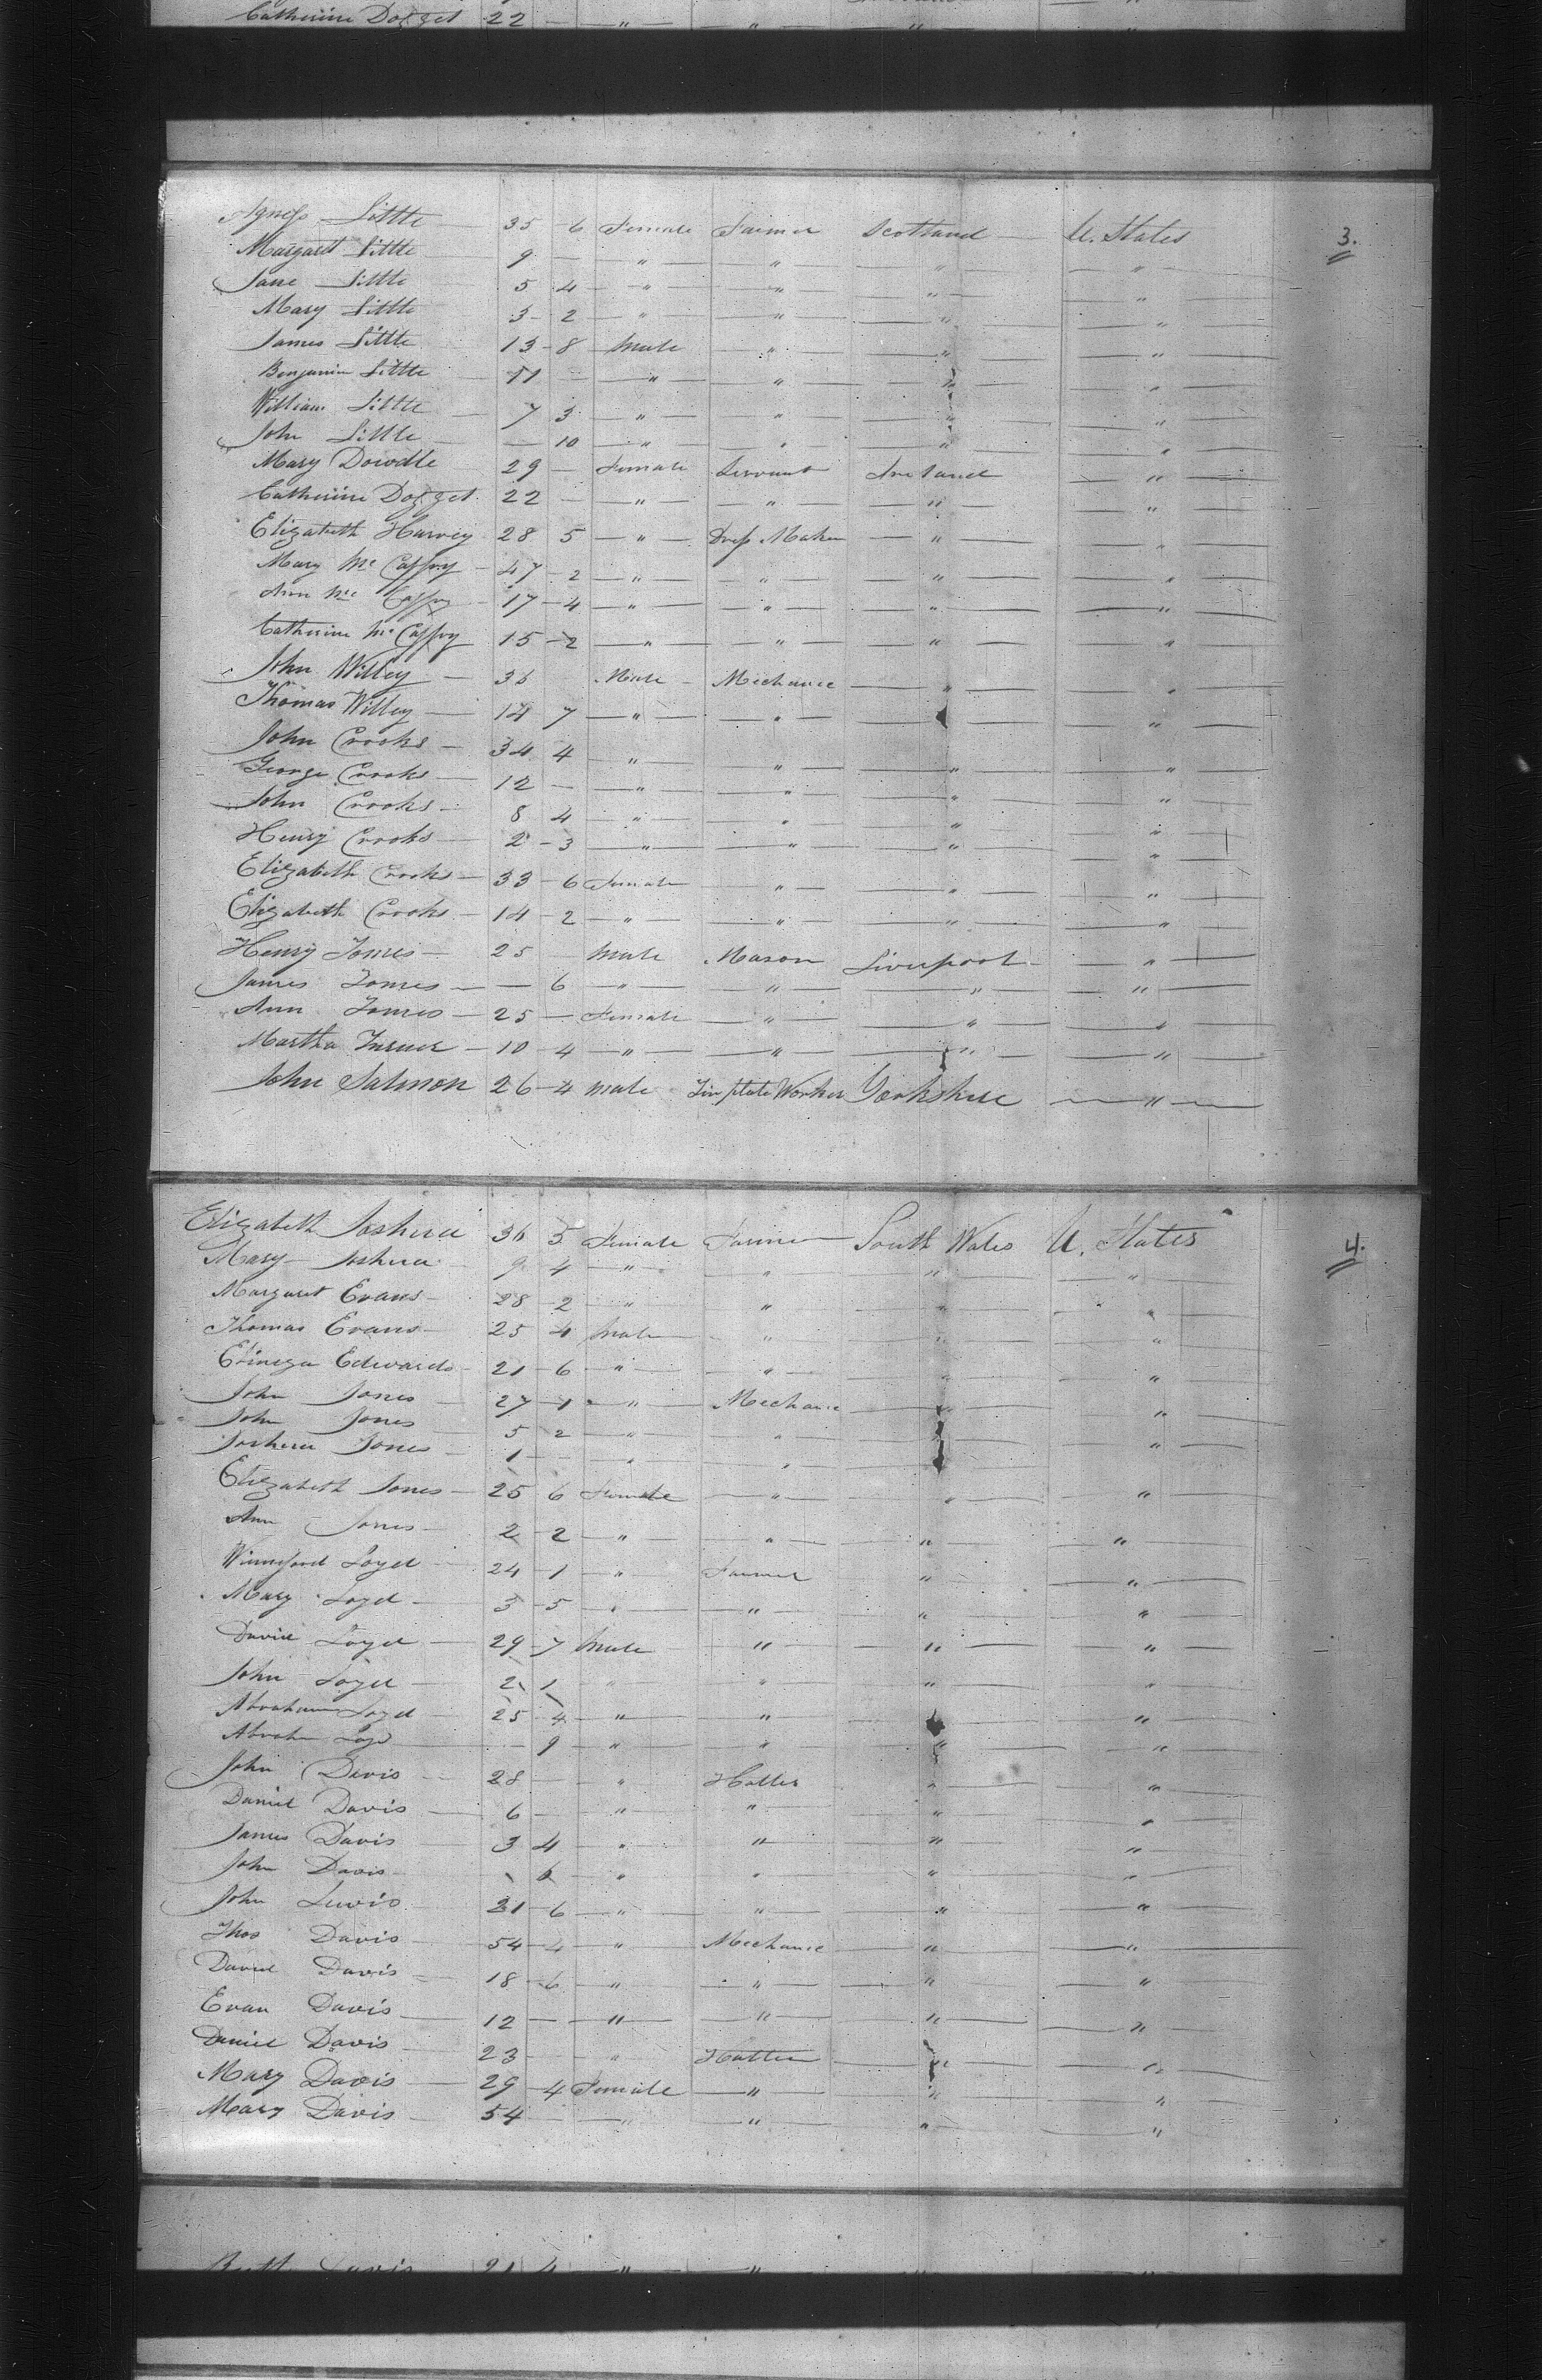 Catherine Dogget 22 — " " " "
3.
Agness Little 35 6 Female Farmer Scotland U. States
Margaret Little 9 — " " " "
Jane Little 5 4 " " " "
Mary Little 3 2 " " " "
James Little 13 8 Male " " "
Benjamin Little 11 — " " " "
William Little 7 3 " " " "
John Little — 10 " " " "
Mary Dowdle 29 — Female Servant Ireland "
Catherine Dogget 22 — " " " "
Elizabeth Harvey 28 5 " Dress Maker " "
Mary Mc Caffry 47 2 " " " "
Ann Mc Caffry 17 4 " " " "
Catherine Mc Caffry 15 2 " " " "
John Willey 36 Male Mechanic " "
Thomas Willey 14 7 " " " "
John Crooks 34 4 " " " "
George Crooks 12 — " " " "
John Crooks 8 4 " " " "
Henry Crooks 2 3 " " " "
Elizabeth Crooks 33 6 Female " " "
Elizabeth Crooks 14 2 " " " "
Henry Jones 25 — Male Mason Liverpool "
James Jones — 6 " " " "
Ann Jones 25 — Female " " "
Martha Turner 10 4 " " " "
John Salmon 26 4 Male Tin plate Worker Yorkshire "
4.
Elizabeth Joshua 36 5 Female Farmer South Wales U. States
Mary Joshua 9 4 " " " "
Margaret Evans 28 2 " " " "
Thomas Evans 25 4 Male " " "
Edwards 21 6 " " " "
John Jones 27 1 " Mechanic " "
John Jones 5 2 " " " "
Joshua Jones 1 — " " " "
Elizabeth Jones 25 6 Female " " "
Ann Jones 2 2 " " " "
Winneford Loyd 24 1 " Farmer " "
Mary Loyd 3 5 " " " "
David Loyd 29 7 Male " " "
John Loyd 2 1 " " " "
Abraham Loyd 25 4 " " " "
Abraham Loyd — 9 " " " "
John Davis 28 — " Hatter " "
Daniel Davis 6 — " " " "
James Davis 3 4 " " " "
John Davis 6 " " " "
John Lewis 21 6 " " " "
Thos Davis 54 4 " Mechanic " "
David Davis 18 6 " " " "
Evan Davis 12 — " " " "
Daniel Davis 23 " Hatter " "
Mary Davis 29 4 Female " " "
Mary Davis 54 — " " " "
Davis 21 4 " "